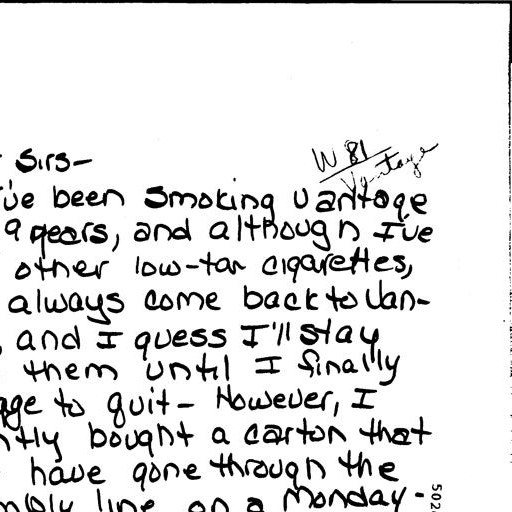 W 81
Vantage
Sirs-
I've been smoking Vantage
9 years, and although I've
other low-tar cigarettes,
always come back to Van-
, and I guess I'll stay
them until I finally
age to quit- However, I
ntly bought a carton that
have gone through the
mbly line on a Monday-
502